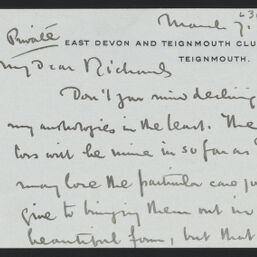 March 7.
Private
EAST DEVON AND TEIGNMOUTH CLU
TEIGNMOUTH.
My Dear Richards
Don't you mind declining
my anthologies in the least. The
loss will be mine in so far as
may lose the particular care you
give to bringing them out in
beautiful form, but that